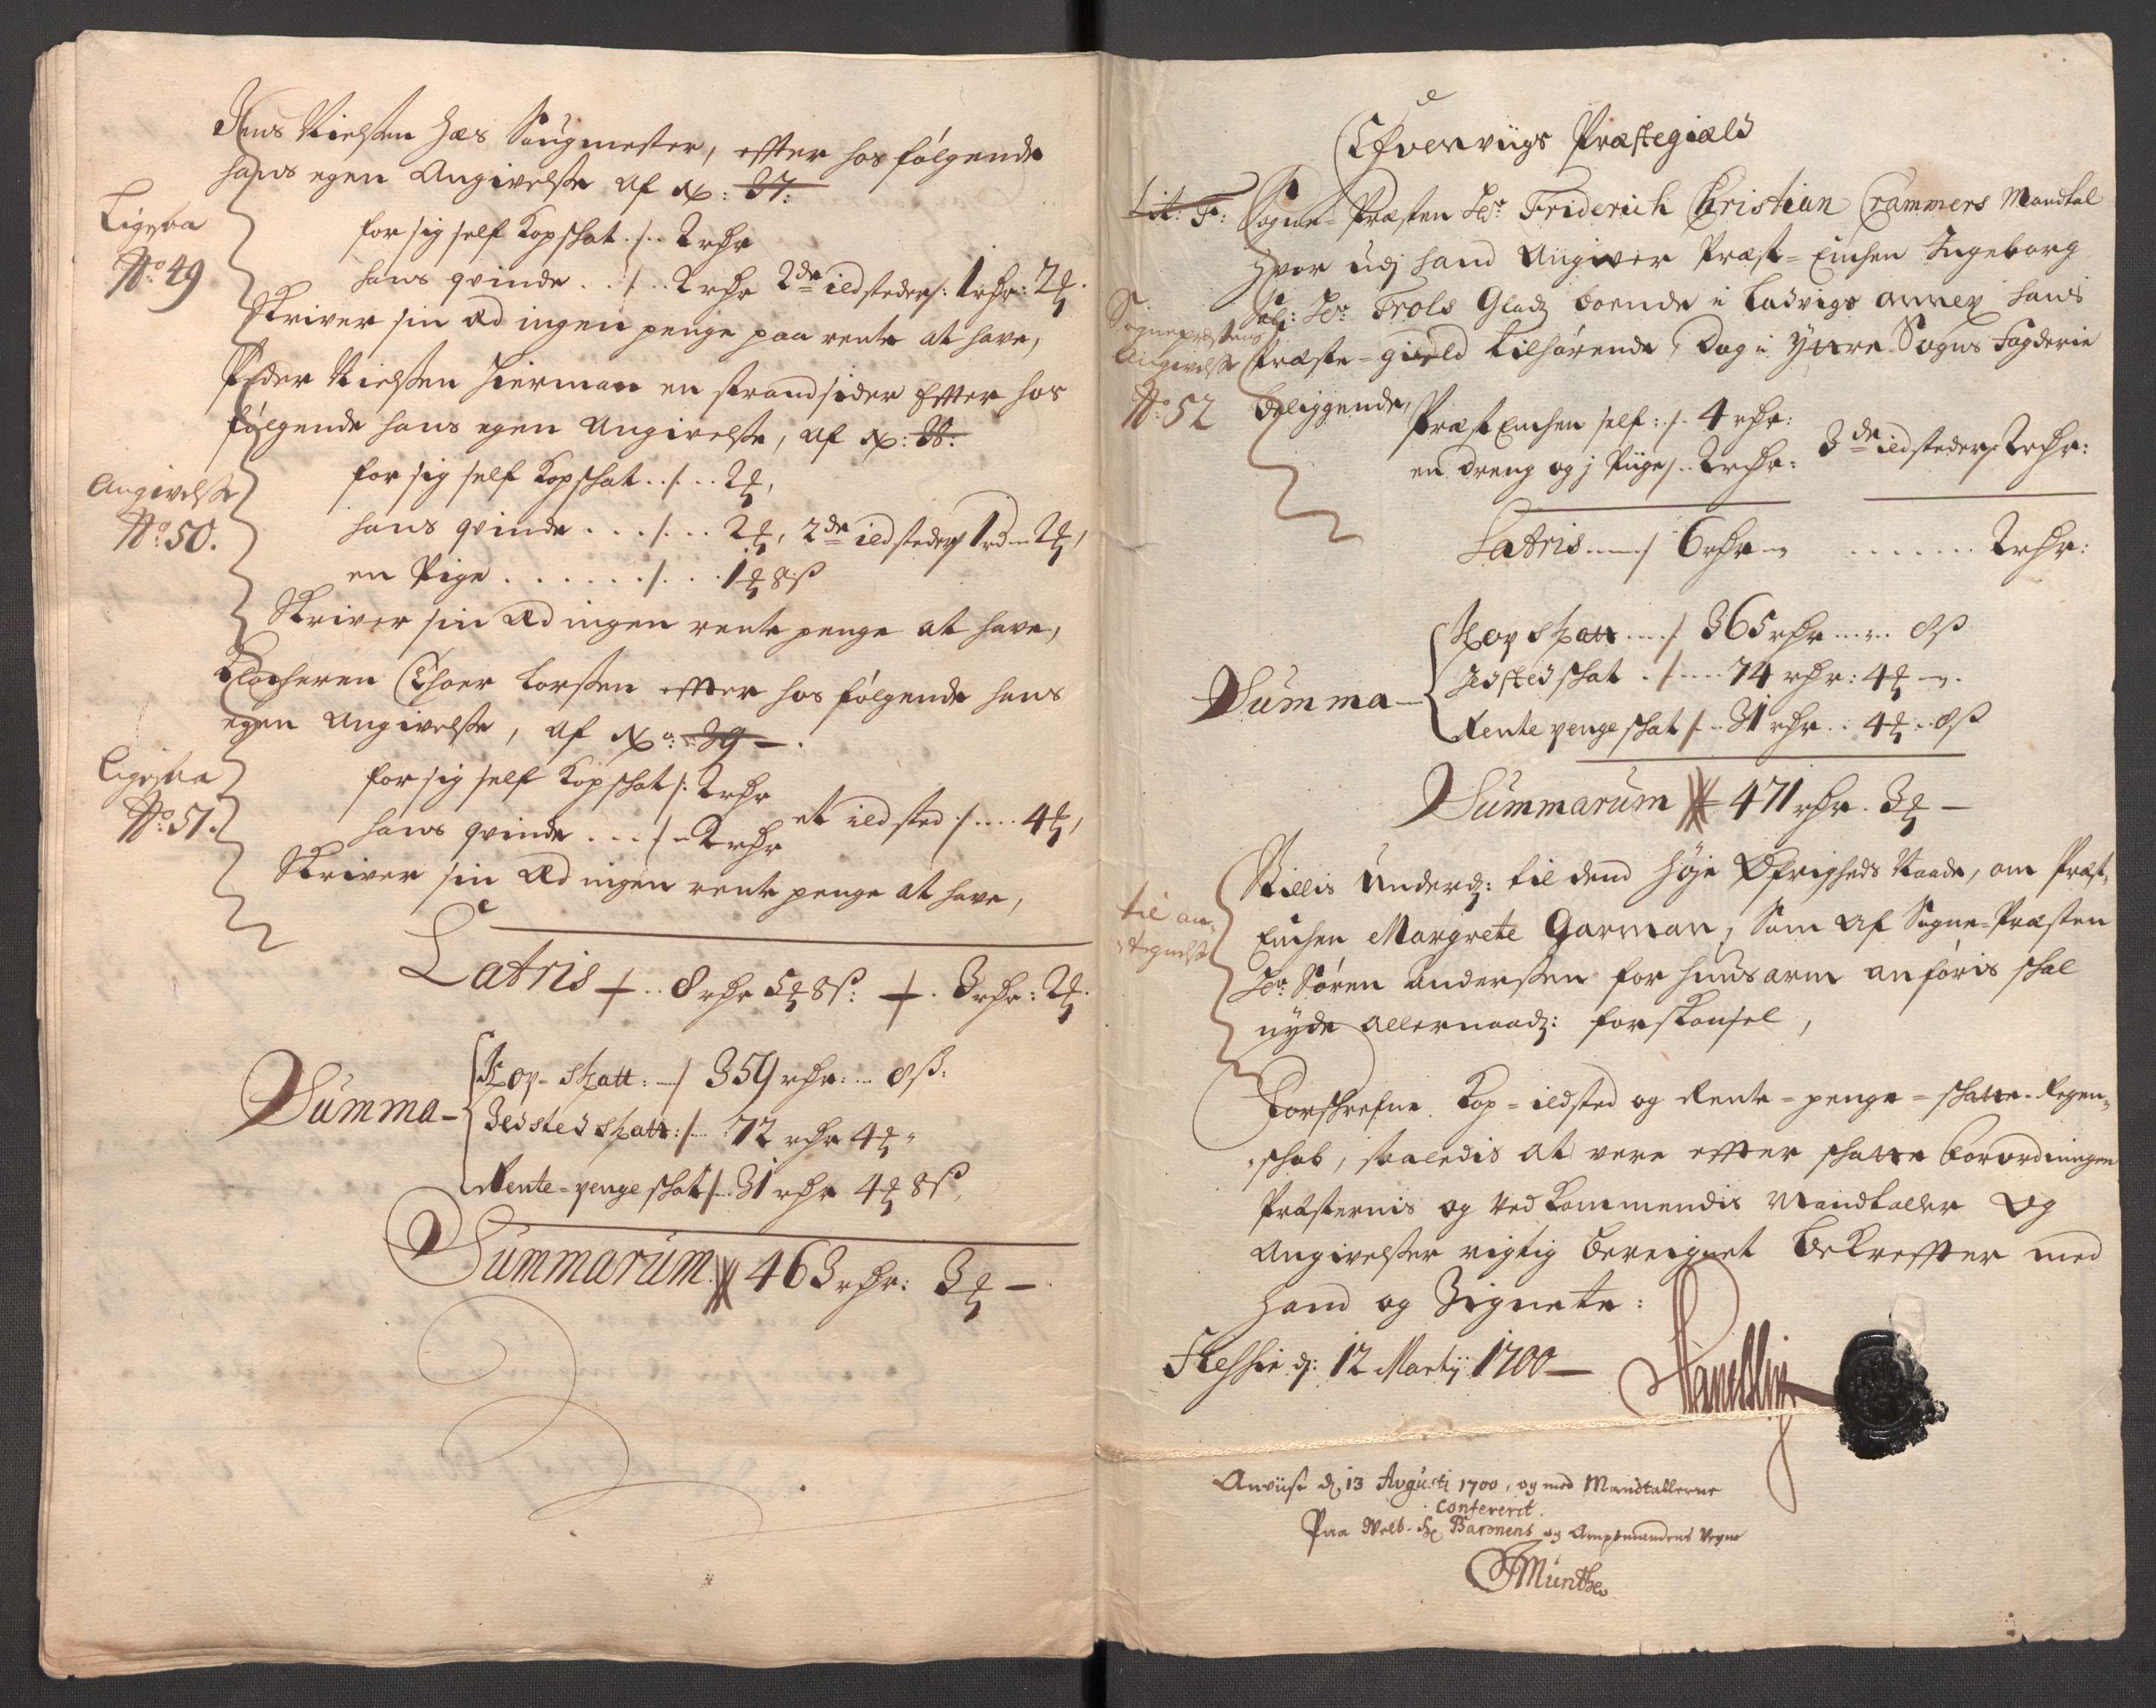 Jens Nielsen Hæs Saugmester, efter hos følgende
hans egen Angivelse af No: 37:
Ligesaa
No: 49
for sig self Kopskat ./.. 2 rdr
hans qvinde .. /. . 2 rdr 2de ildsteder /: 1 rdr: 2
Skriver sin Æd ingen penge paa rente at have,
Peder Nielsen Hierman en strandsider Efter hos
følgende hans egen Angivelse, af No: 38:
Angivelse
No: 50.
for sig self Kopskat . . / . . . 2
hans qvinde . . . / . . . 2 , 2de ildsteder / 1 rd - 2
en Pige . . . . . . / . . . 1 8 ß
Skriver sin Æd ingen rente penge at have,
Klocheren Lorsen efter hos følgende hans
egen Angivelse, af No: 39 -.
Ligesaa
No: 51.
for sig self Kopskat /: 2 rdr
hans qvinde . . . / - 2 rdr et ildsted / . . . . 4
Skriver sin Æd ingen rente penge at have,
Latris . . 8 rdr 5 8 ß: . 3 rdr: 2
Summa -
Kop-Skatt: — / 359 rdr: .. 8 ß:
Ildsted skatt: / . . . 72 rdr 4
Rente-penge skat / . . 31 rdr 4 8 ß,
Summarum 463 rdr: 3 —
Præstegiæld
Lit: F: Sogne-Præsten Hr. Friderich Christian Crammers Mandtal
Hvor udj hand Angiver Præst-Enchen Ingeborg
Sal: Hr: Trols Gladz boende i Ladvigs annex hans
Sognepræstens
Angivelse
No: 52
Præste-gield tilhørende, Dog i Yttre Sogns fogderie
beliggende,
Præst Enchen self: /. 4 rdr:
en dreng og j Piige /.. 2 rdr: 3de ildsteder / 2 rdr:
Latris ..... / 6 rdr . . . . . . . 2 rdr:
Summa —
Kop Skatt .... / 365 rdr .... 8 ß
Ildsted skat . / .... 74 rdr: 4
Rente penge skat / .. 31 rdr .. 4 .. 8 ß
Summarum 471 rdr. 3 —
til an-
tegnelse
Stillis Underd: til dend Høje Øfrigheds Naade, om Præst-
Enchen Margrete Garman, Som af Sogne-Præsten
Hr: Søren Andersen for huusarm anføris skal
nyde allernaad: forskaansel,
Forschrefne Kop-ildsted og Rente-penge-skatte-Regen-
schab, saaledis at vere efter skatte forordningen
Præsternis og Vedkommendis Mandtaller og
Angivelser rigtig beregnet bekrefter med
Haand og Zignete:
d: 12 Martij 1700 —
Anviist d. 13 Augusti 1700, og med Mandtallerne
Confererit.
Paa Welb. Hr Baronens og Amptmandens Vegne
Münthe